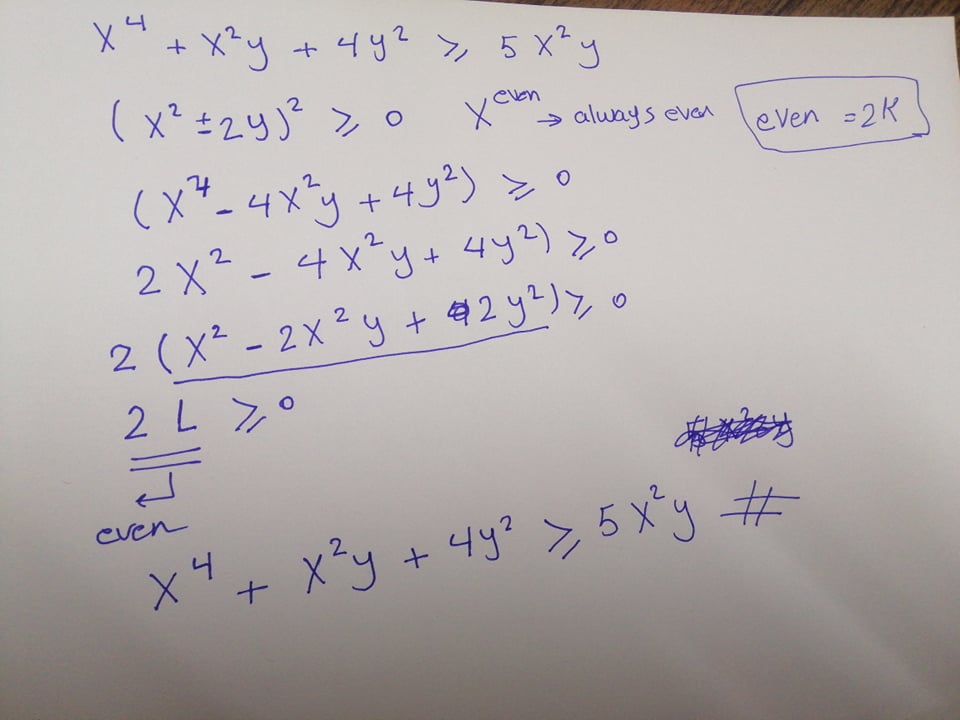 x⁴ + x²y + 4y² ⩾ 5x²y
(x² ± 2y)² ⩾ 0   x^even → always even   even = 2K
(x⁴ - 4x²y + 4y²) ⩾ 0
2x² - 4x²y + 4y²) ⩾ 0
2(x² - 2x²y + 2y²) ⩾ 0
2L ⩾ 0
even
x⁴ + x²y + 4y² ⩾ 5x²y #